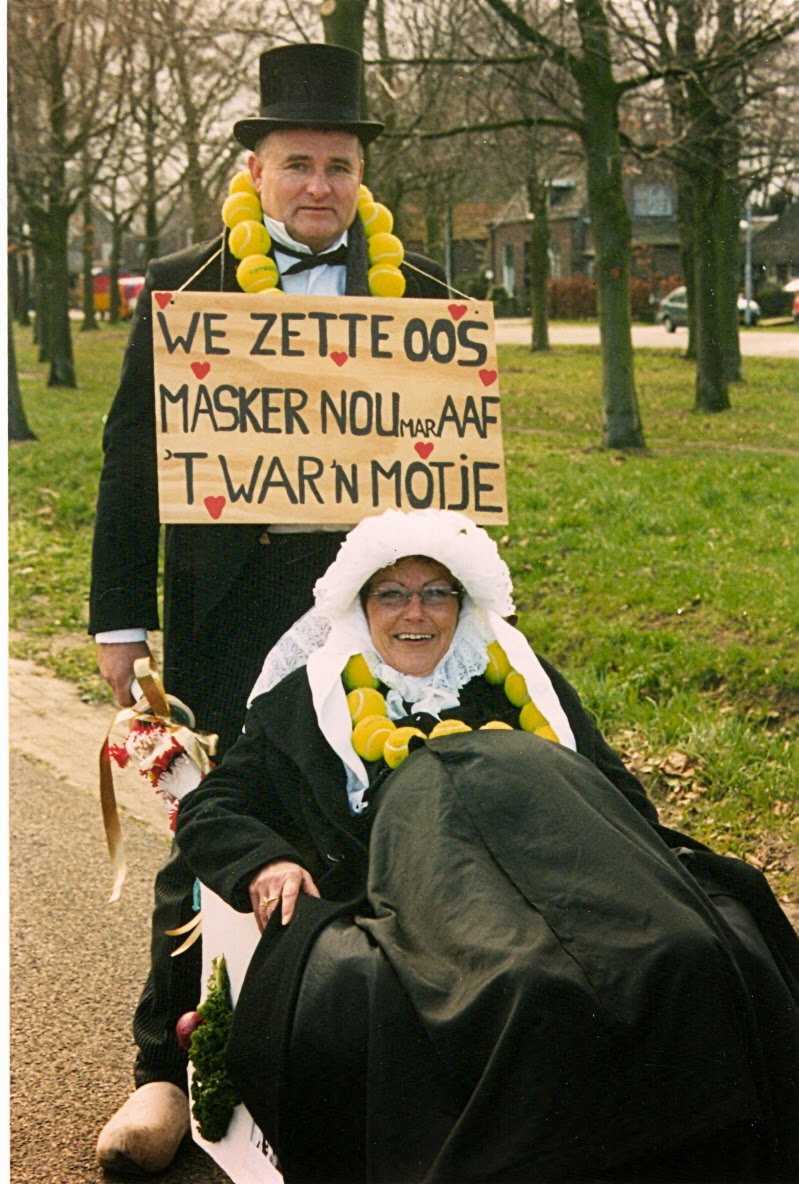 WE ZETTE OOS
MASKER NOU MAR AAF
'T WAR 'N MOTJE